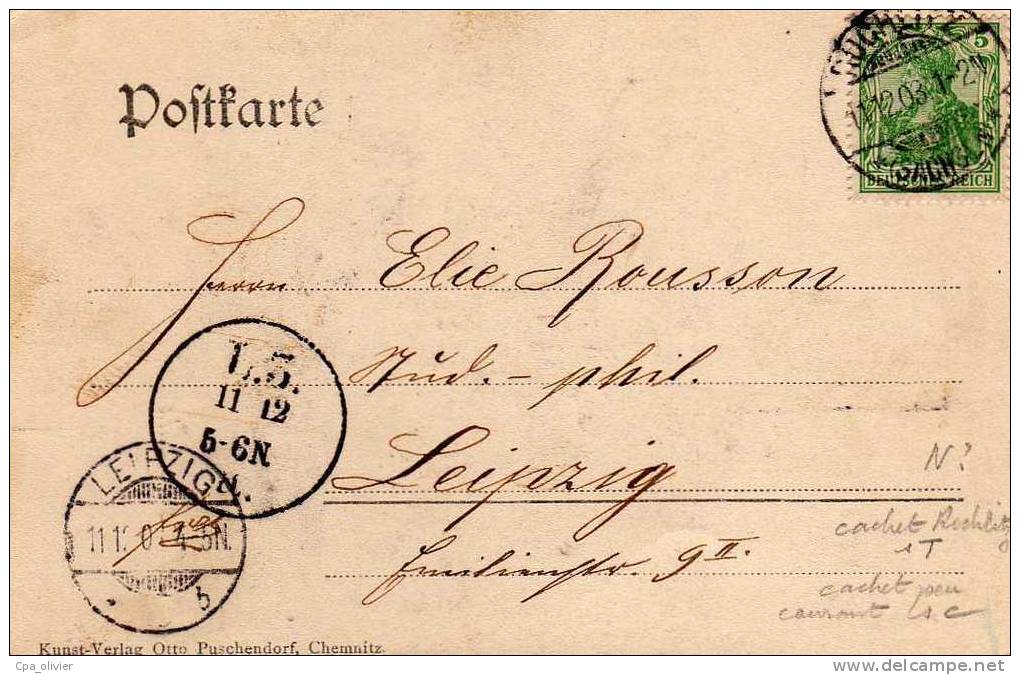 Postkarte
5
11.12.03. 1-2N
DEUTSCHES REICH
Herrn Elie Rousson
stud. - phil.
Leipzig
Emilienstr. 9 II.
L.5.
11 12
5-6N
LEIPZIG
4-5N.
b
N?
cachet Rochlitz
1T
cachet peu
courant
Kunst-Verlag Otto Puschendorf, Chemnitz.
Cpa_olivier
delcampe.net